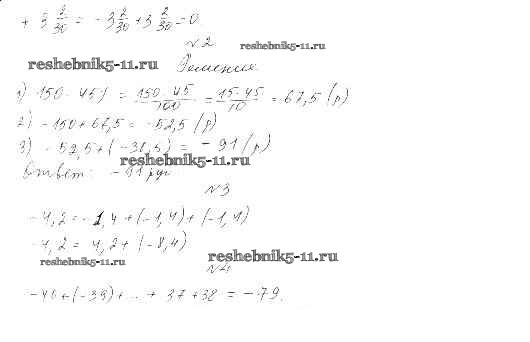 + 3 2/30 = -3 2/30 + 3 2/30 = 0.
№2
reshebnik5-11.ru
reshebnik5-11.ru
Решение
1) 150 · 45% = 150·45/100 = 15·45/10 = 67,5 (р)
2) -150+67,5 = -52,5 (р)
3) -52,5+(-38,5) = -91 (р)
reshebnik5-11.ru
Ответ: -91 руб
№3
-4,2 = -1,4 + (-1,4) + (-1,4)
-4,2 = 4,2 + (-8,4)
reshebnik5-11.ru
reshebnik5-11.ru
№4
-40+(-39)+...+ 37+38 = -79.